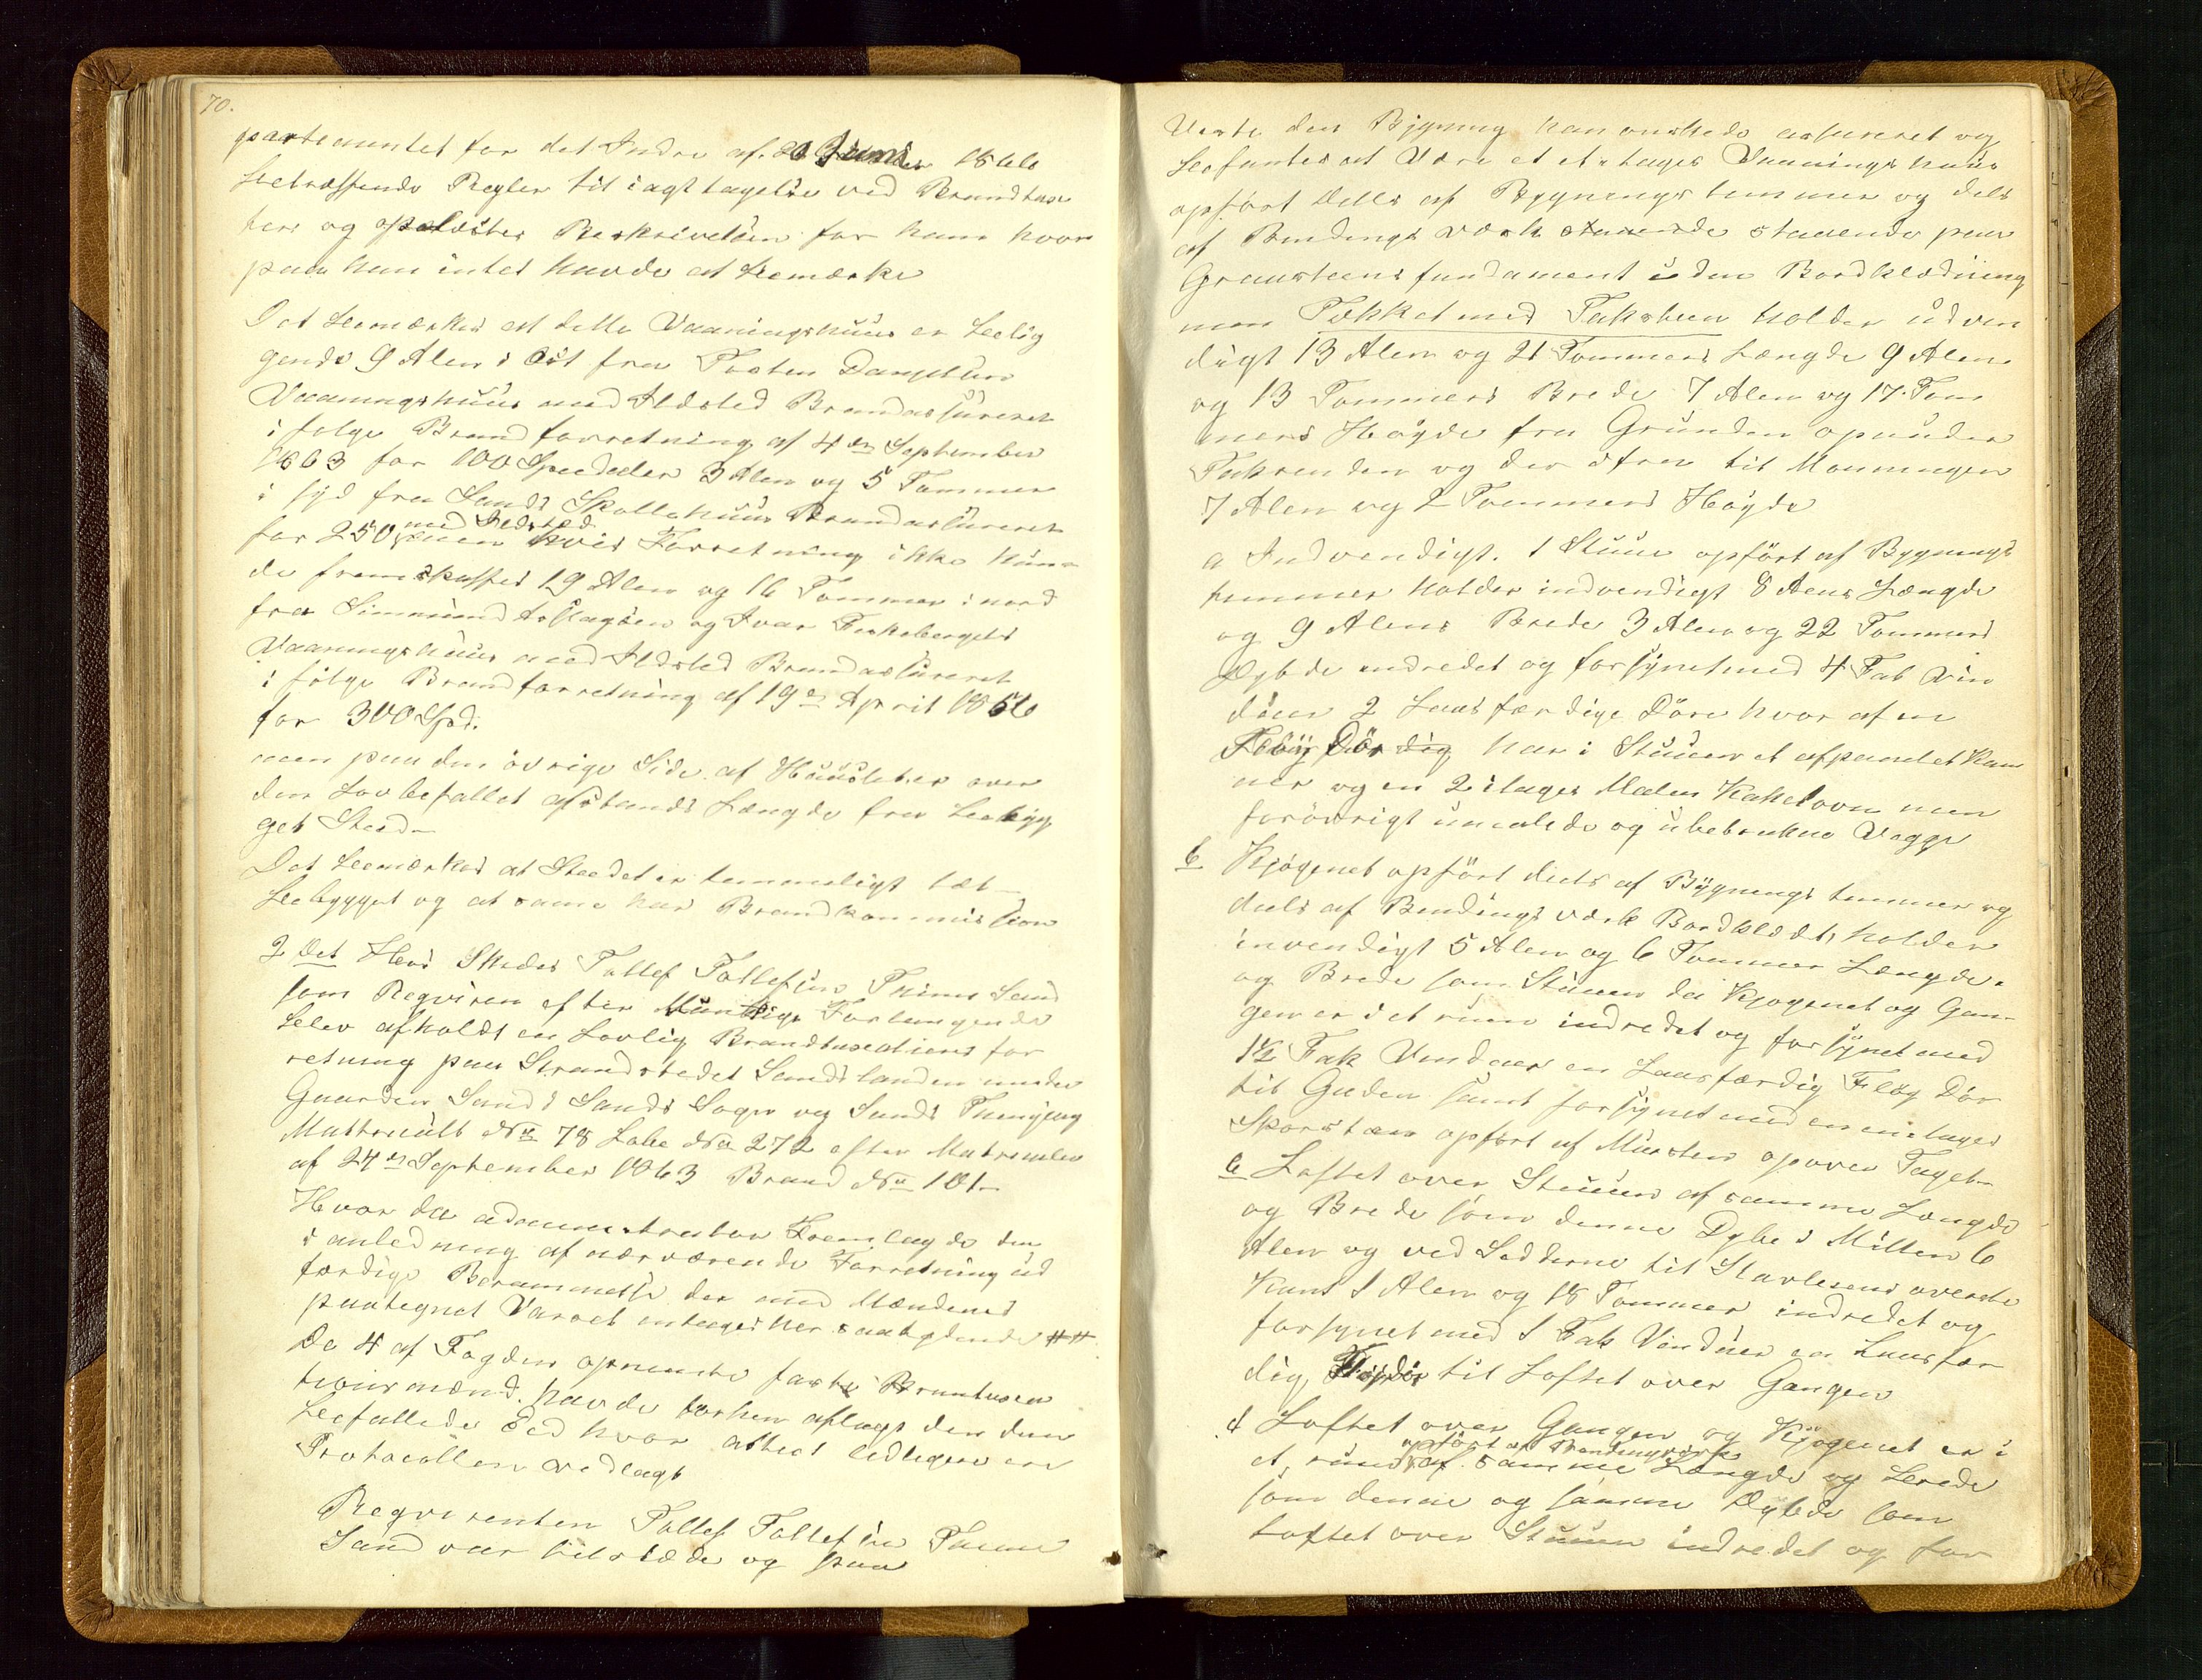 70.
partementet for det Indre af 20 Juni 1846
betræffende Regler til iagttagelse ved Brandtaxa
ter og oplæstes Beskrivelsen for ham hvor
paa han intet havde at bemærke
Det bemærkes at dette Vaaningshuus er belig
gende 9 Alen i Øst fra Tosten
Vaaningshuus med Ildsted Brandassureret
i følge Brandforretning af 4de September
1863 for 100 Speciedaler 3 Alen og 5 Tommer
i syd fra Sands Skollehuus Brandassureret
med Ildsted
for 250 men hvis Forretning ikke kun
de fremskaffes 19 Alen og 16 Tommer i nord
fra Simmund Aslagsen og Ivar
Vaaningshuus med Ildsted Brandassureret
i følge Brandforretning af 19de April 1856
for 300 Spd.
men paa den øvrige Side af Huuset er over
den Lovbefallet afstands Længde fra bebyg
get Sted
Det bemærkes at Stædet er temmeligt tæt
bebygget og at same har Brandkommission
2 det Hos Skeder Tollef Tollefsen Sand
som Reqviren efter Mundtlige Forlangende
blev afholdt en Lovlig Brandtaxations for
retning paa Strandstedet Sandslanden under
Gaarden Sand i Sands Sogn og Sands Thinglaug
Mattricult No 78 Løbe No 272 efter Matriculen
af 24de September 1863 Brand No 101
Hvor da administrator Fremlagde den
i anledning af nærværende Forretning ud
færdige Berammelse der med Mændenes
paategnet Varsel intages her saalydende ##
De 4 af Fogden opnævnte faste Brantaxa
tionsmænd havde forhen aflagt den dem
befallede Eed hvor attest tidligere er
Protocollen vedlagt
Reqvirenten Tollef Tollefsen
Sand var tilstæde og paa
viste den Bygning han ønskede assureret og
befantes at være et et etages Vaanings huus
opført dells af Bygningstømmer og dels
af Bindingsværk staaende staaende paa
Graasteensfundament uden Bordklædning
men Tækket med Taksteen holder udven
digt 13 Alen og 21 Tommers Længde 9 Alen
og 13 Tommers Brede 7 Alen og 17 Tom
mers Høyde fra Grunden op under
Takrenden og der ifra til Mønningen
7 Alen og 2 Tommers Høyde
a Indvendigt. 1 Stuue opført af Bygnings
tømmer holder indvendigt 8 Alens Længde
og 9 Alens Brede 3 Alen og 22 Tommers
Dybde indredet og forsynet med 4 Fab Vin
duer 2 Laasfærdige Döre hvor af en
Fløy Dör har i Stuuen et afpanelet Kam
mer og en 2 etages Malm Kakelovn men
forövrigt umalede og ubetrukne Vægge
b Kjøgenet opfört deels af Bygnings tømmer og
deels af Bindingsværk Bordklædt, holder
invendigt 5 Alen og 6 Tommer Længde
og Brede som Stuuen da Kjøgenet og Gan
gen er i et rum indredet og forsynet med
1½ Fak Vinduer en Laasfærdig Fløy Dör
til Gaden samt forsynet med en en etages
Skorsteen opført af Mursten op over Taget
c Loftet over Stuuen af samme Længde
og Brede som denne Dybe i Mitten 6
Alen og ved Sidderne til Stavlesens øverste
Kant 1 Alen og 18 Tommer indredet og
forsynet med 1 Fab Vinduer en Laasfær
dig Fløydör til Loftet over Gangen
d Loftet over Gangen og Kjøgenet er i
opført af Bendingsværk
et rum af samme Længde og Brede
som denne og samme Dybde som
Loftet over Stuuen indredet og for